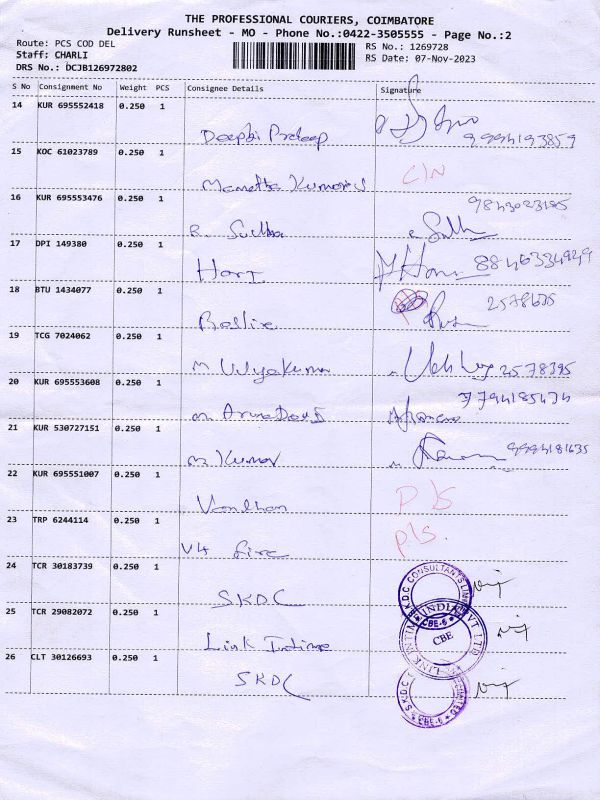 THE PROFESSIONAL COURIERS, COIMBATORE
Delivery Runsheet - MO - Phone No.:0422-3505555 - Page No.:2
Route: PCS COD DEL
RS No.: 1269728
Staff: CHARLI
RS Date: 07-Nov-2023
DRS No.: DCJB126972802
S No Consignment No Weight PCS Consignee Details Signature
14 KUR 695552418 0.250 1
Deepti Pradeep
15 KOC 61023789 0.250 1
Mamatha C/N
16 KUR 695553476 0.250 1 9843023185
R. Sudha
17 DPI 149380 0.250 1
Hari
18 BTU 1434077 0.250 1 2578635
19 TCG 7024062 0.250 1
M. Vijayakumar 2578395
20 KUR 695553608 0.250 1
21 KUR 530727151 0.250 1 9994181635
M. Kumar
22 KUR 695551007 0.250 1
P/S
23 TRP 6244114 0.250 1
P/S.
V4
24 TCR 30183739 0.250 1
S.K.D.C CONSULTANTS
SKDC
CBE-6
25 TCR 29082072 0.250 1
LINK INTIME INDIA PVT LTD
CBE
Link Intime
26 CLT 30126693 0.250 1
SKDC
S.K.D.C
CBE-6